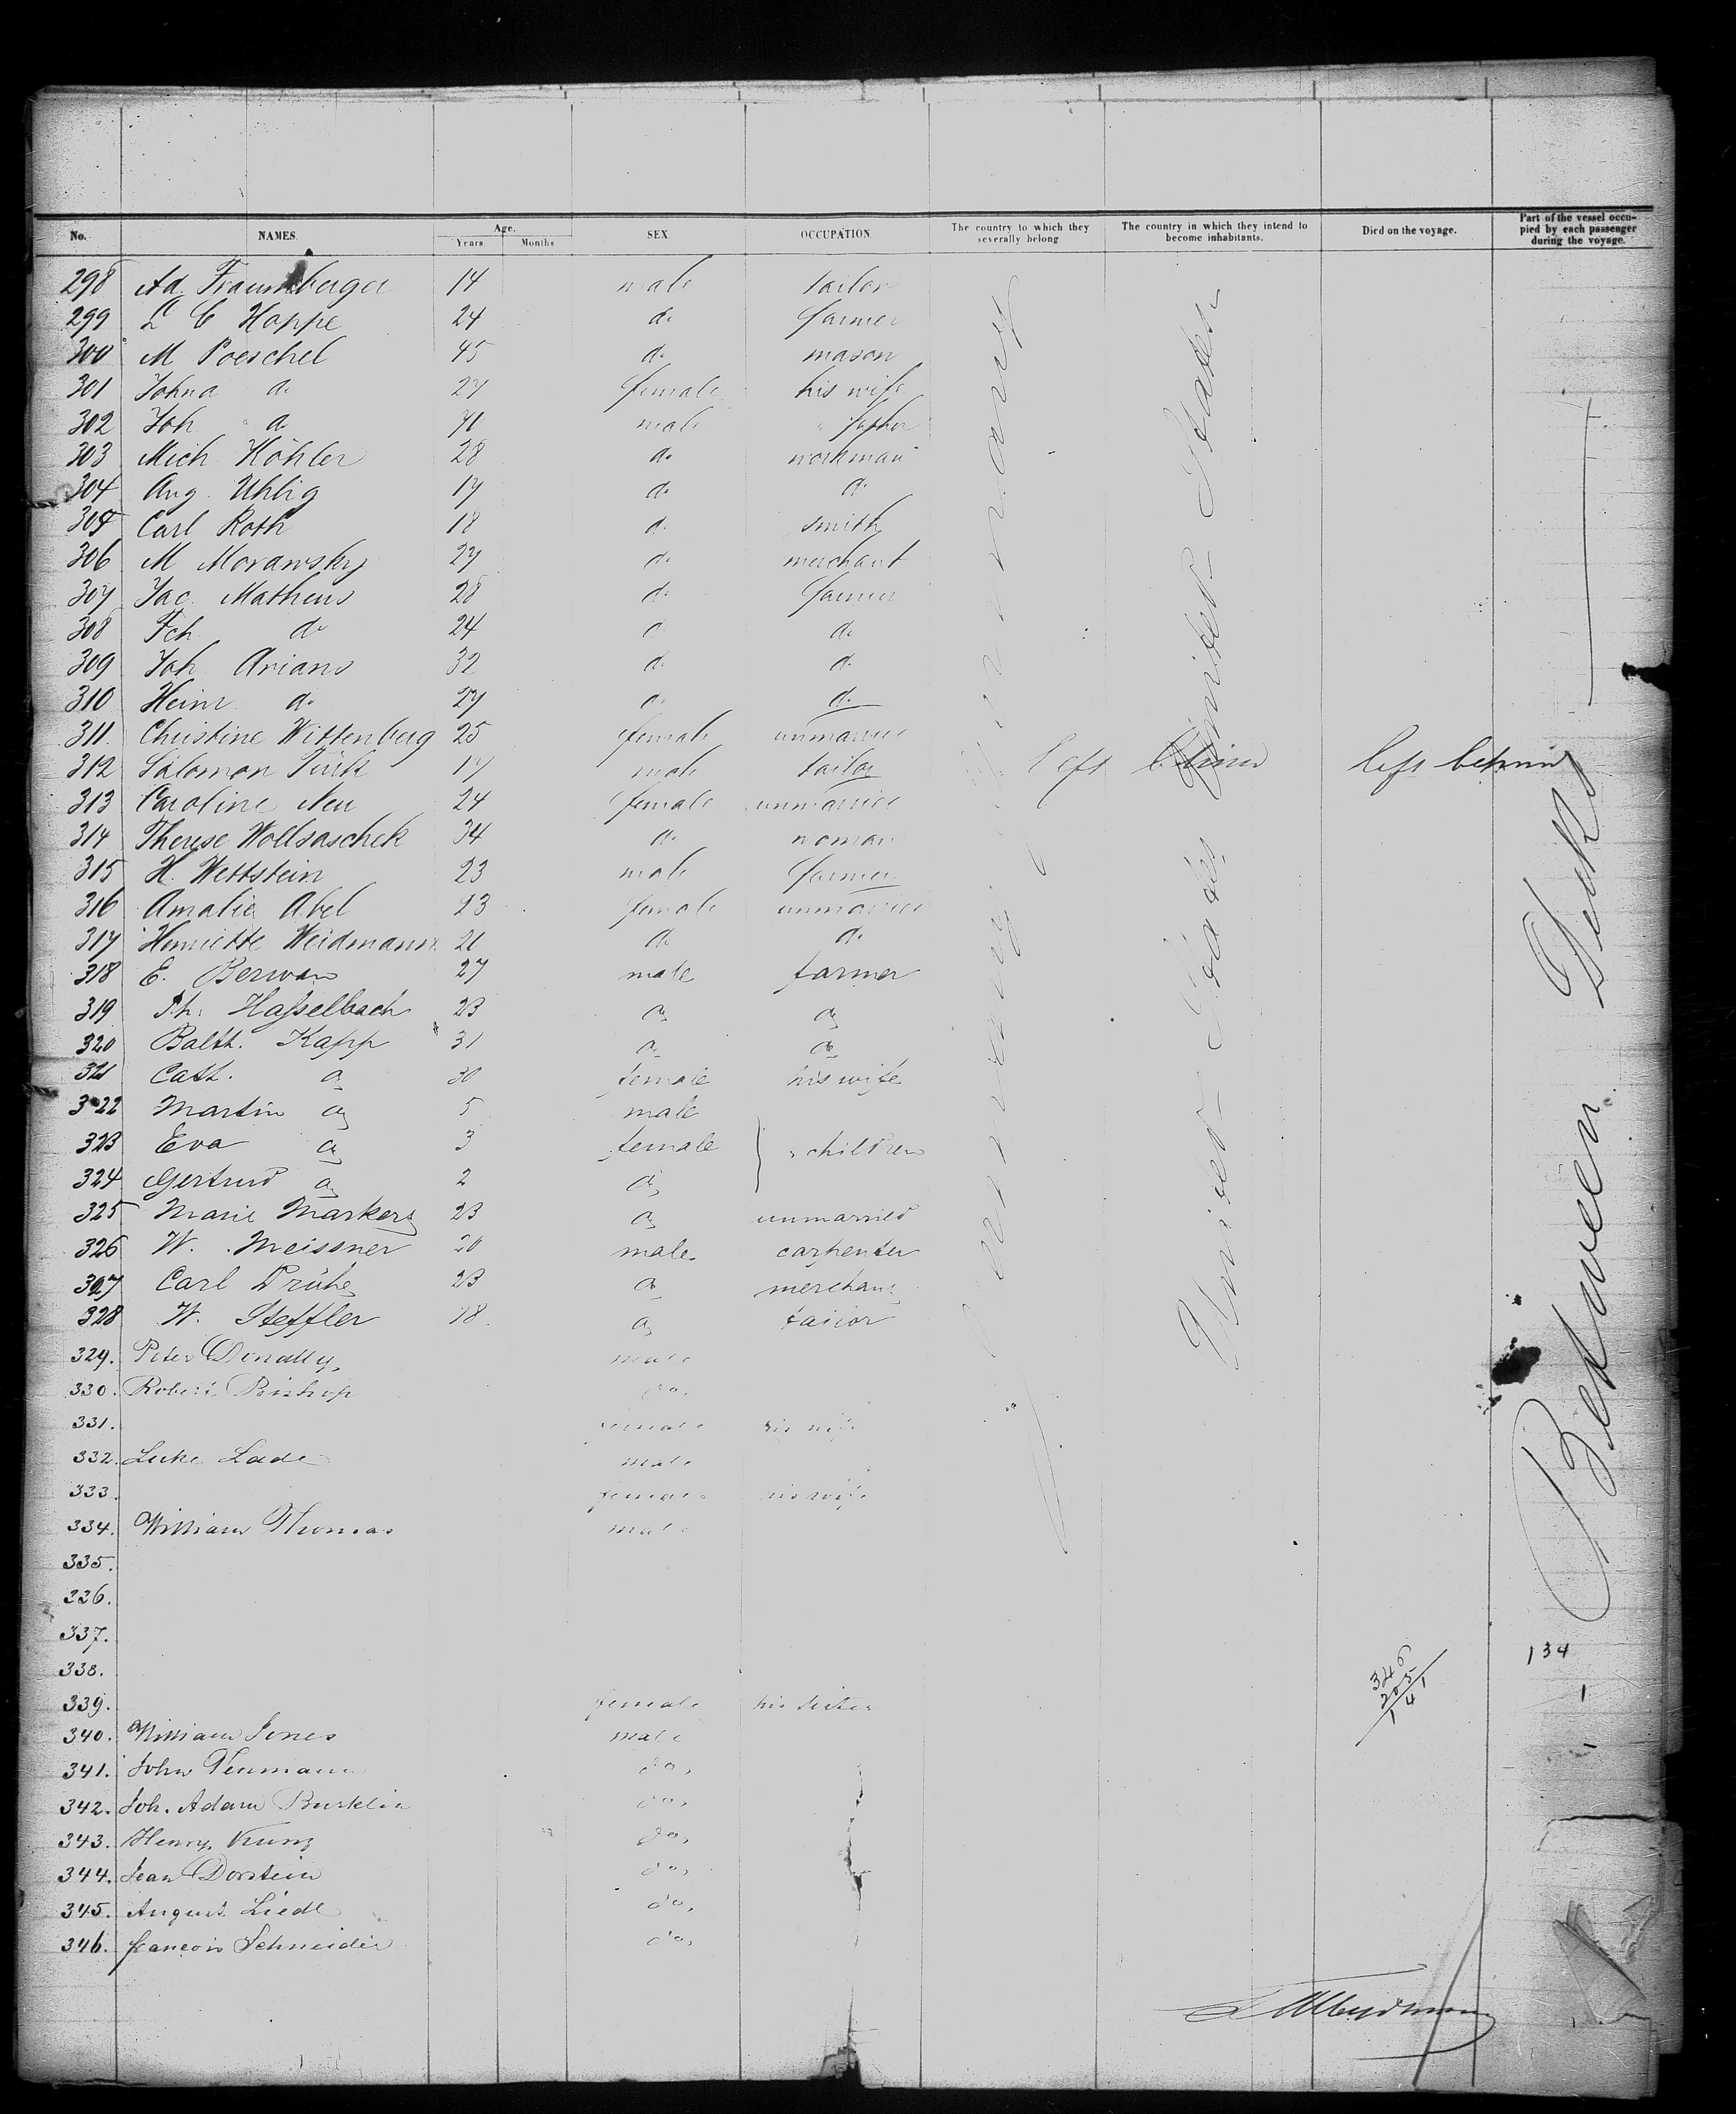 No. NAMES. Age. Years. Months SEX. OCCUPATION. The country to which they severally belong The country in which they intend to become inhabitants. Died on the voyage. Part of the vessel occupied by each passenger during the voyage.
298 Ad. male tailor
299 L C Hoppe 24 do farmer
300 M Poeschel 45 do mason
301 Johna do 27 female his wife
302 Joh do male father
303 Mich Köhler 28 do workman
304 Aug. Uhlig 17 do do
305 Carl Roth 18 do smith
306 M Morawsky 27 do merchant
307 Jac. Matheus 28 do farmer
308 Fch do 24 do do
309 Joh Arians 32 do do
310 Heinr do 27 do do
311. Christine Wittenberg 25 female unmarried
312 Salomon 17 male tailor left behind left behind
313 Caroline Neu 24 female unmarried
314 Therese Wollsaschek 34 do woman
315 H. Wettstein 23 male farmer
316 Amalie Abel 23 female unmarried
317 Henriette Weidmann 21 do do
318 E. Berwan 27 male farmer
319 Ph. Hasselbach 23 do do
320 Balth. Kapp 31 do do
321 Cath. do 30 female his wife
322 Martin do 5 male
323 Eva do 3 female children
324 Gertrud do 2 do
325 Marie Markers 23 do unmarried
326 W. Meissner 20 male carpenter
327 Carl Prühe 23 do merchant
328 W. Steffler 18 do tailor
329. Peter Donally male
330. Robert Bishop do,
331. female his wife
332. Luke Lade male
333. female his wife
334. William Thomas male
335.
336.
337.
338.
339. female his sister
340. William Jones male
341. John do,
342. Joh. Adam Burklin do,
343. Henry Kunz do,
344. Jean Dorstein do,
345. August Liedl do,
346. Francois Schneider do,
Germany
Germany
United States
United States
Between Decks
346
205
141
134
1